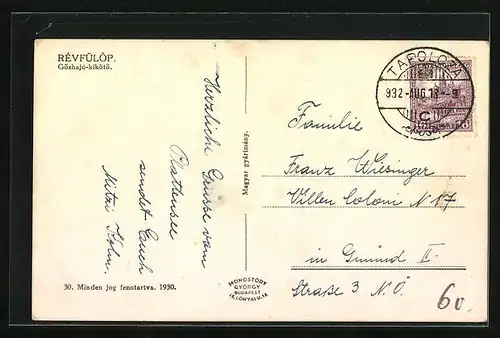 RÉVFÜLÖP.
Gőzhajó-kikötő.
Herzliche Grüsse vom
Plattensee
sendet Euch
Mitzi Kolm.
30. Minden jog fenntartva. 1930.
Magyar gyártmány.
MONOSTORY
GYÖRGY
BUDAPEST
TAPOLCZA
932-AUG.13.-9
C
Familie
Franz Wiesinger
Villen Coloni N 17
in Gmünd II.
Straße 3 N.Ö.
60.